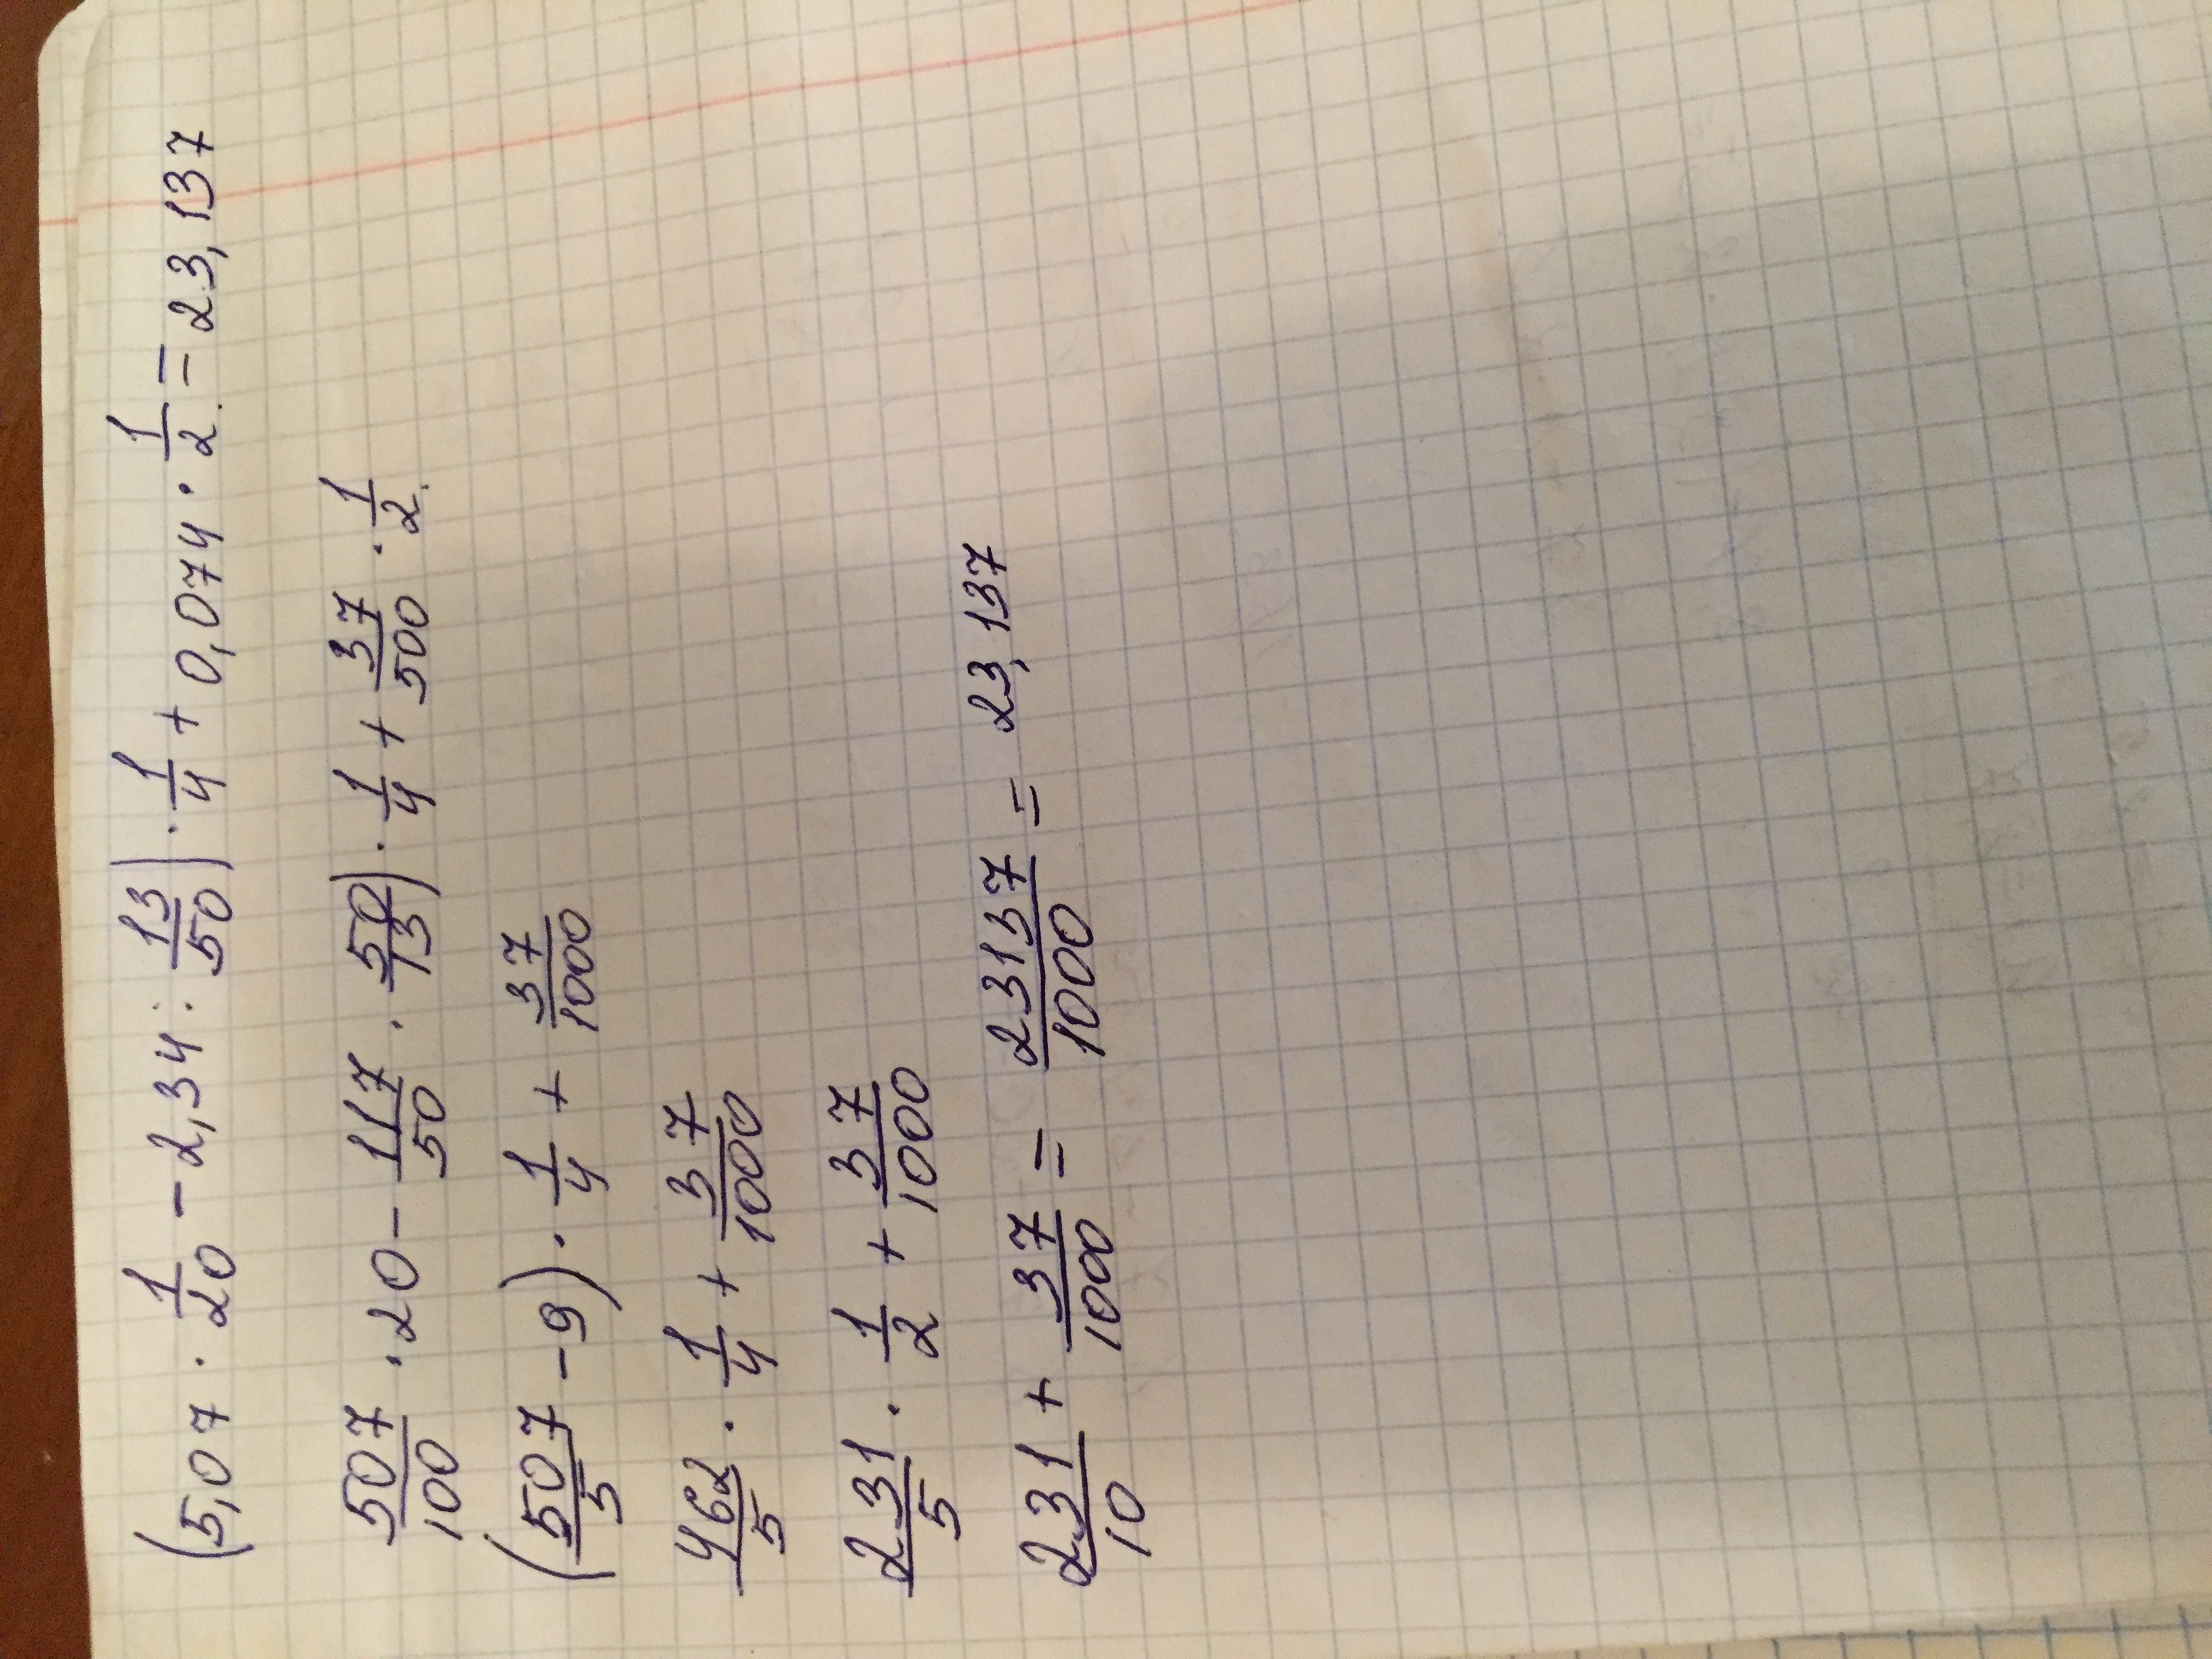 (5,07 · 1/20 - 2,34 : 13/50) · 1/4 + 0,074 · 1/2 = 23,137
507/100 · 20 - 117/50 · 50/13) · 1/4 + 37/500 · 1/2
(507/5 - 9) · 1/4 + 37/1000
462/5 · 1/4 + 37/1000
231/5 · 1/2 + 37/1000
231/10 + 37/1000 = 23137/1000 = 23,137